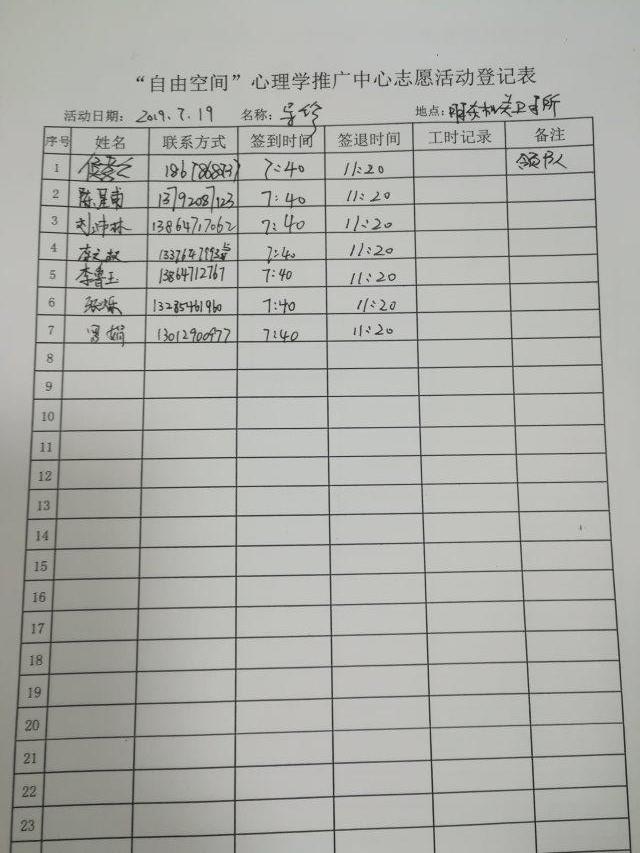 “自由空间”心理学推广中心志愿活动登记表
活动日期：2019.7.19 名称：导诊 地点：服务机关卫生所
序号 姓名 联系方式 签到时间 签退时间 工时记录 备注
1 7:40 11:20
2 13792087123 7:40 11:20
3 13864717062 7:40 11:20
4 7:40 11:20
5 李鲁玉 13864712767 7:40 11:20
6 13285461960 7:40 11:20
7 娟 13012900977 7:40 11:20
8
9
10
11
12
13
14
15
16
17
18
19
20
21
22
23